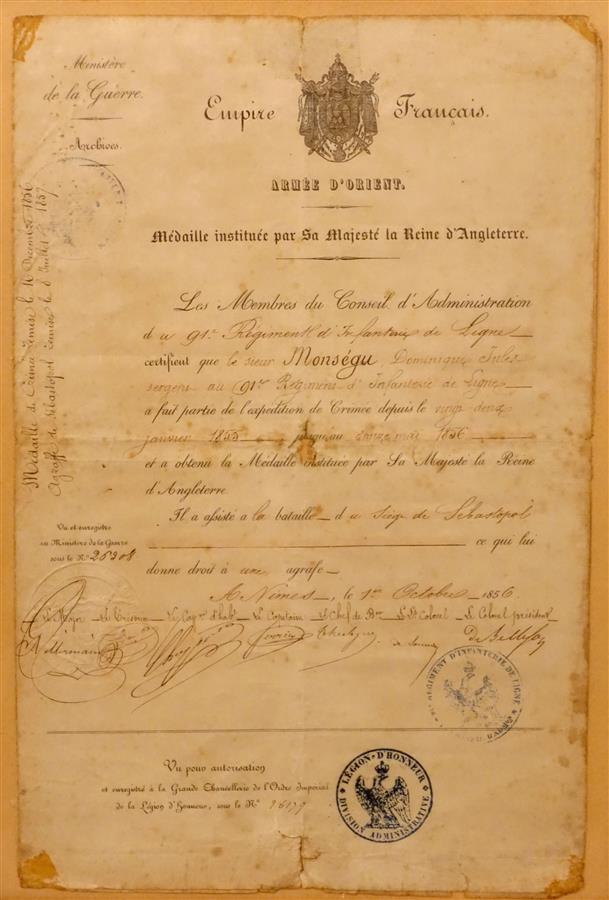 Ministère
de la Guerre.
Archives.
Empire Français.
ARMÉE D'ORIENT.
Médaille instituée par Sa Majesté la Reine d'Angleterre.
Les Membres du Conseil d'Administration
du 91e Régiment d'Infanterie de Ligne
certifient que le sieur Monségu, Dominique Jules
sergent au 91e Régiment d'Infanterie de Ligne
a fait partie de l'expédition de Crimée depuis le vingt deux
janvier 1855 jusqu'au mai 1856
et a obtenu la Médaille instituée par Sa Majesté la Reine
d'Angleterre.
Il a assisté a la bataille d u siège de Sébastopol
ce qui lui
donne droit à une agrafe
A Nîmes, le 1er Octobre 1856
Le Major Le Trésorier Le Cap.ne d'hab.t Le Capitaine Le Chef de B.on Le Lt Colonel Le Colonel président
Médaille de Crimée remise le 16 Décembre 1856
Agraffe de Sébastopol remise le 8 Juillet 1857
Vu et enregistré
au Ministère de la Guerre
sous le No 26308
RÉGIMENT D'INFANTERIE DE LIGNE
Vu pour autorisation
et enregistré à la Grande Chancellerie de l'Ordre Impérial
de la Légion d'Honneur, sous le No
LÉGION D'HONNEUR
DIVISION ADMINISTRATIVE